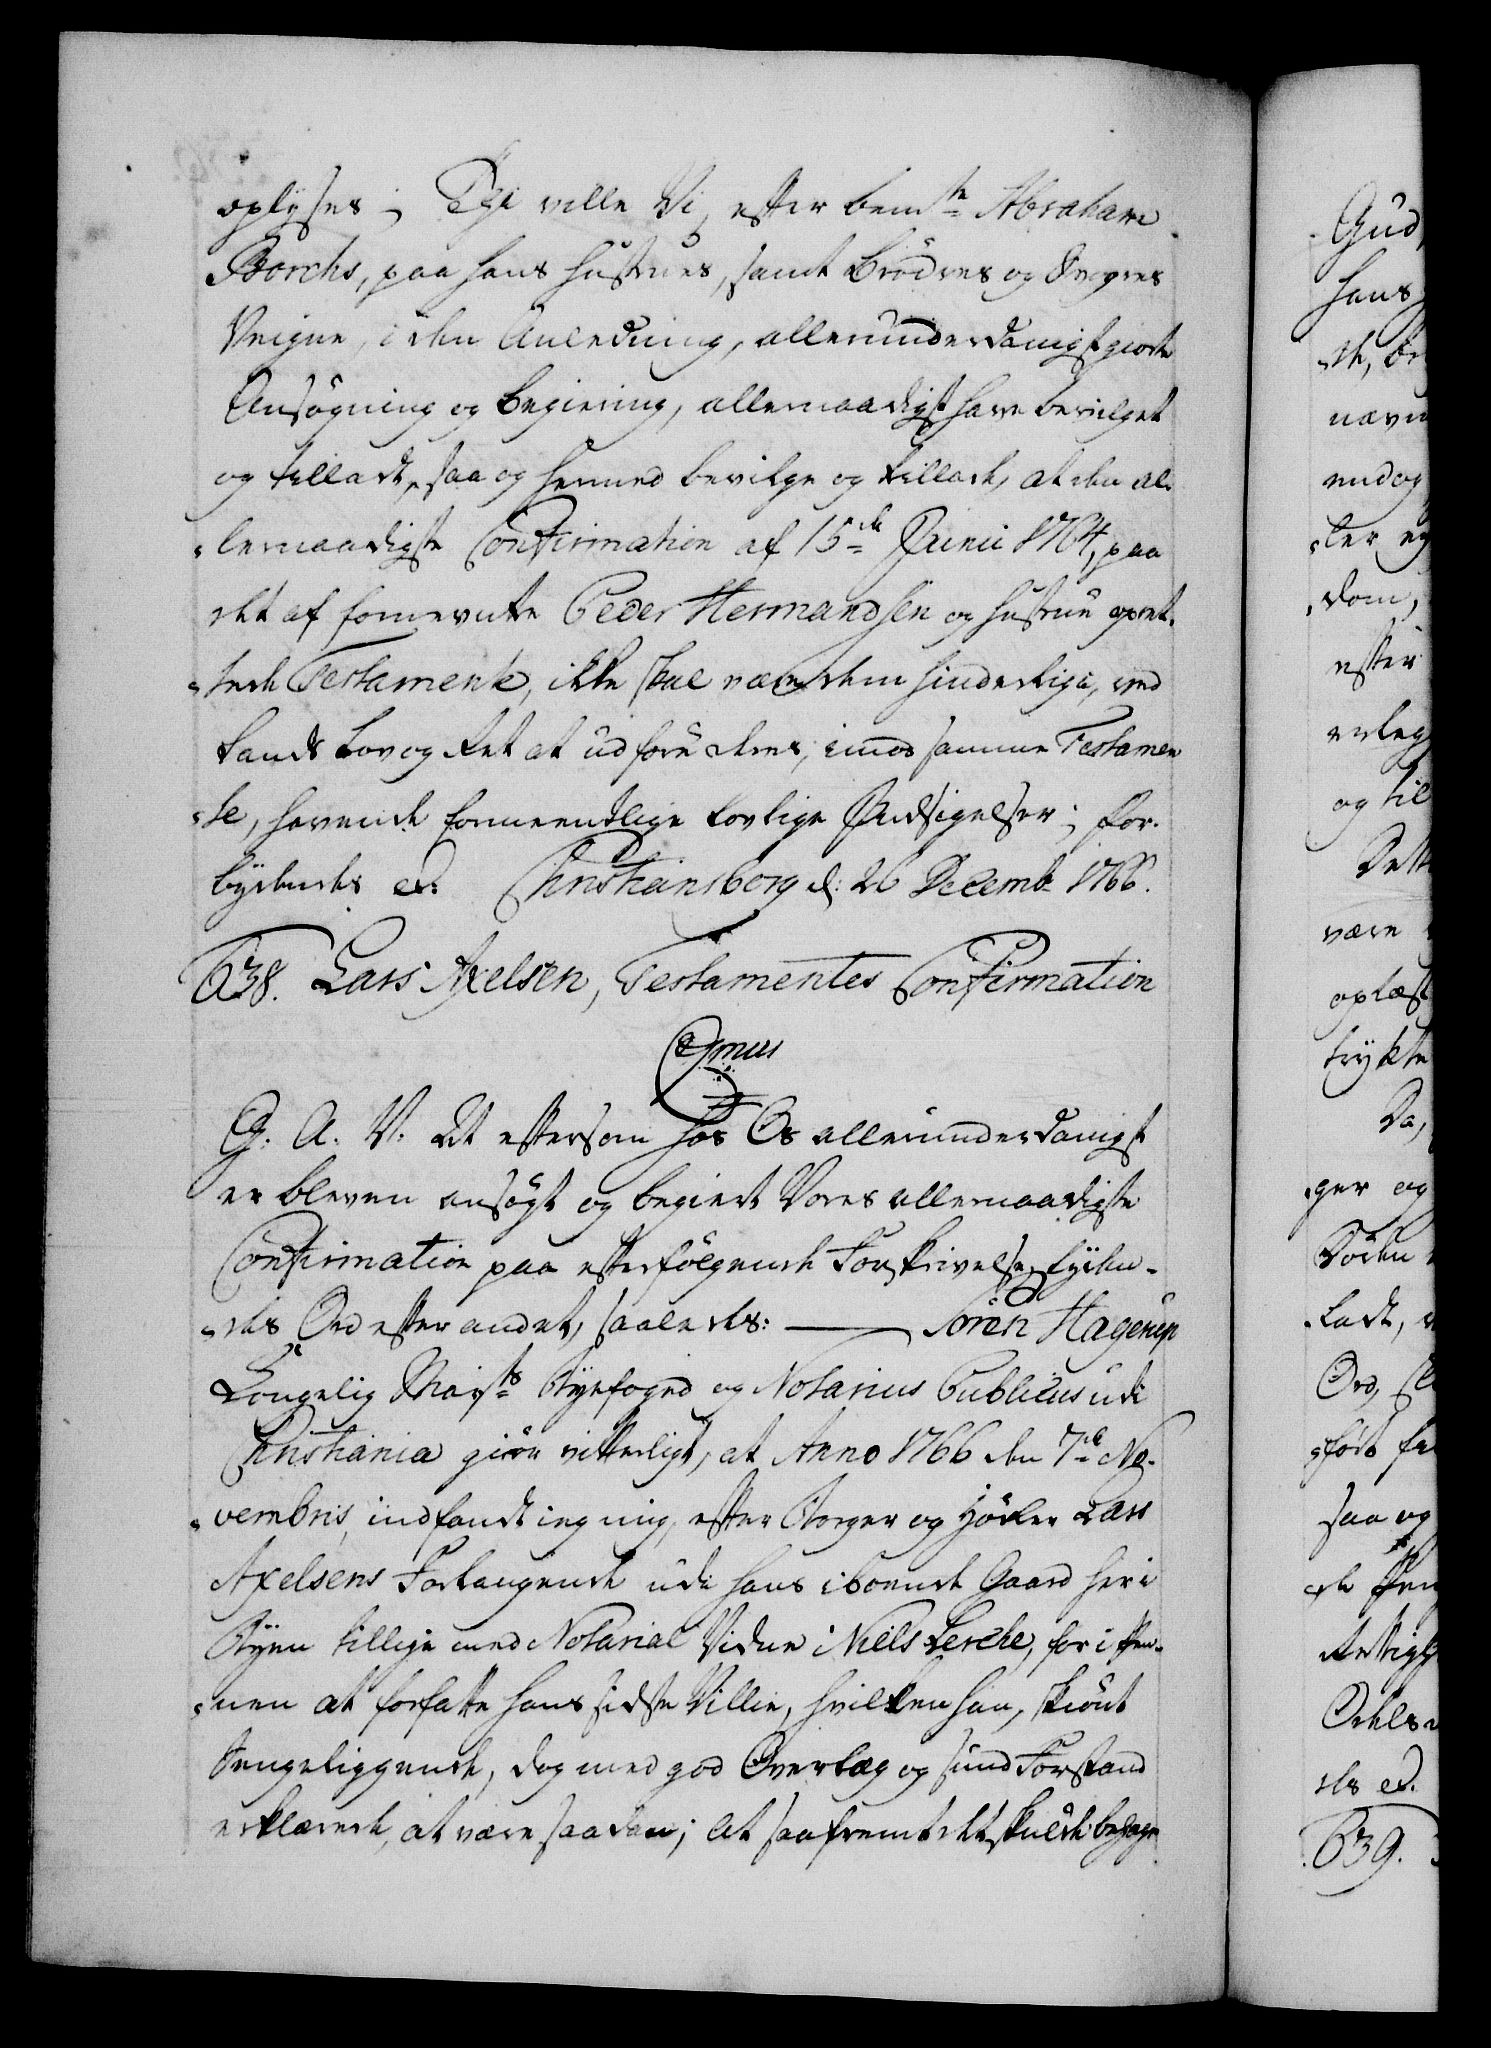 oplyses; Thi ville Vi, efter bemte Abraham
Borchs, paa hans Hustrues, samt Brödres og Svogres
Veigne, i den Anledning, allerunderdanigst giorte
Ansøgning og Begiering, allernaadigst have bevilget
og tilladt, saa og hermed bevilge og tillade, at den al-
lernaadigste Confirmation af 15de Junii 1764, paa
det af fornevnte Peder Hermandsen og Hustrue opret-
tede Testamente, ikke skal være dem hinderlige, ved
Lands Lov og Ret at udføre deres, imod samme Testamen
te, havende formeentlige lovlige Indsigelser; For-
bydendes etc. Christiansborg d: 26 Decemb. 1766.
638. Lars Axelsen, Testamentes Confirmation
G: A: V: At eftersom hos Os allerunderdanigst
er bleven ansøgt og begiert Vores allernaadigste
Confirmation paa efterfölgende Forskrivelse, lyden-
des Ord efter andet, saaledes: — Sören Hagerup
Kongelig Mayts Byefoged og Notarius Publicus udi
Christiania giör vitterligt, at Anno 1766 den 7de No-
vembris, indfandt ieg mig, efter Borger og Høker Lars
Axelsens Forlangende udi hans iboende Gaard her i
Byen tillige med Notarial Vidne Niels Lerche, for i Pen-
nen at forfatte hans sidste Villie, hvilken han, skiönt
Sengeliggende, dog med god Overlæg og sund Forstand
erklærede, at være saadan; At saafremt det skulde behage
Gud,
hans
nævn
med og
ter og
dom,
efter
erleg
og til
Dett
være
oplæst
trykte
Da,
ger og
Döden
Ladt,
Ord,
saa og
Odels
des etc.
639.